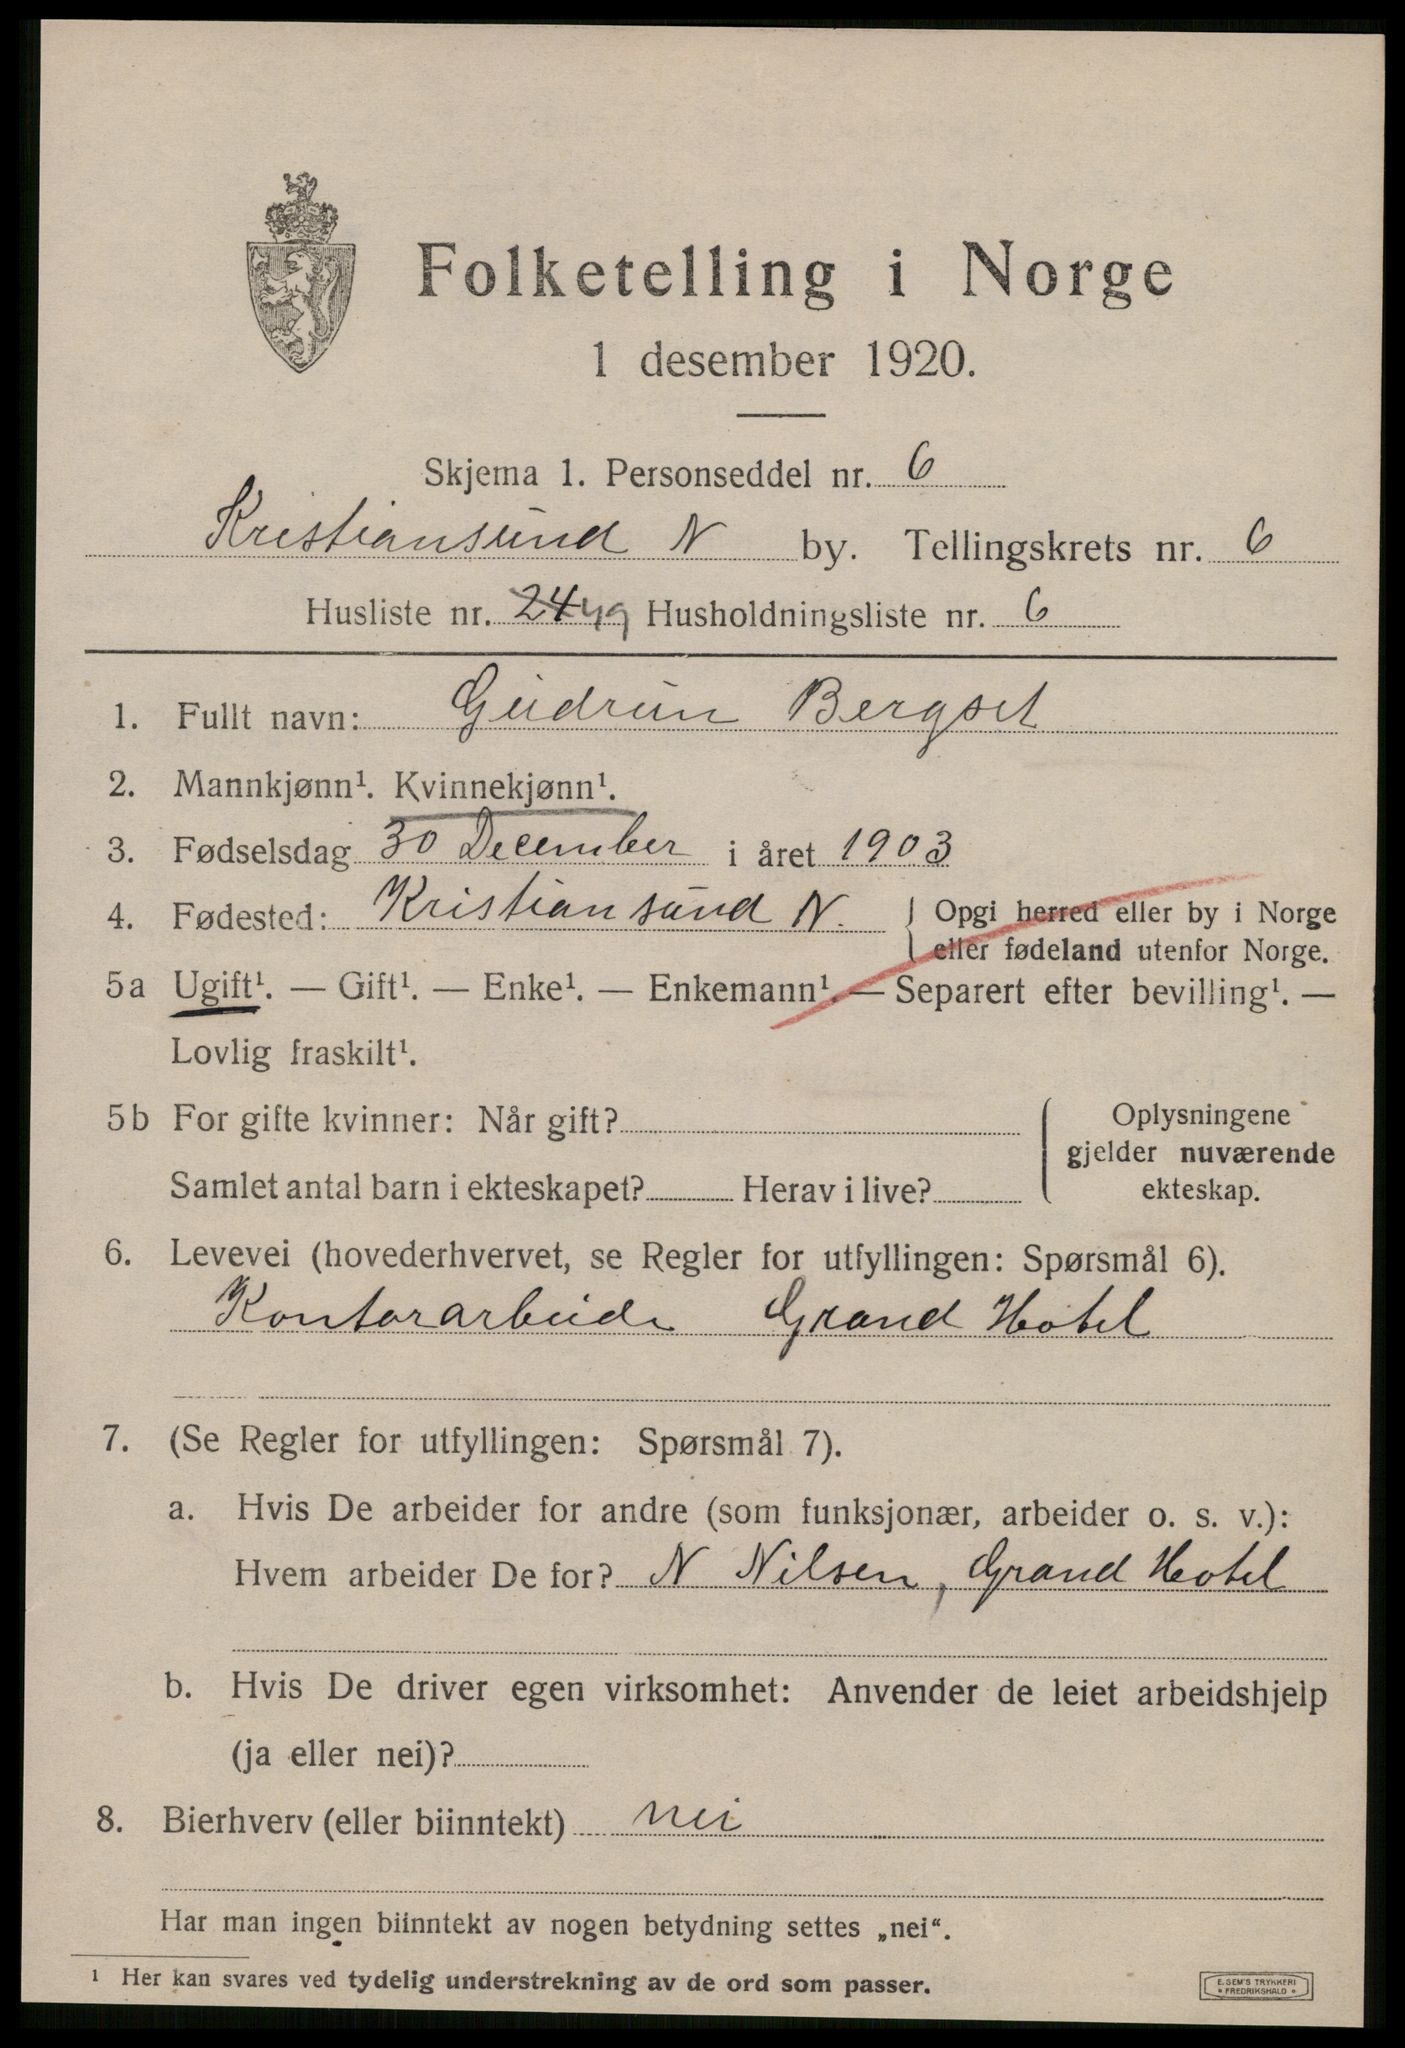 Folketelling i Norge
1 desember 1920.
Skjema 1. Personseddel nr. 6
Kristiansund N by. Tellingskrets nr. 6
Husliste nr. 24 49 Husholdningsliste nr. 6
1. Fullt navn: Gudrun Bergset
2. Mannkjønn¹. Kvinnekjønn¹.
3. Fødselsdag 30 December i året 1903
4. Fødested: Kristiansund N. { Opgi herred eller by i Norge
eller fødeland utenfor Norge.
5a Ugift¹. — Gift¹. — Enke¹. — Enkemann¹. — Separert efter bevilling¹. —
Lovlig fraskilt¹.
5b For gifte kvinner: Når gift?
Samlet antal barn i ekteskapet? Herav i live?
{ Oplysningene
gjelder nuværende
ekteskap.
6. Levevei (hovederhvervet, se Regler for utfyllingen: Spørsmål 6).
Kontorarbeide Grand Hotel
7. (Se Regler for utfyllingen: Spørsmål 7).
a. Hvis De arbeider for andre (som funksjonær, arbeider o. s. v.):
Hvem arbeider De for? N Nilsen, Grand Hotel
b. Hvis De driver egen virksomhet: Anvender de leiet arbeidshjelp
(ja eller nei)?
8. Bierhverv (eller biinntekt) nei
Har man ingen biinntekt av nogen betydning settes „nei“.
¹ Her kan svares ved tydelig understrekning av de ord som passer.
E. SEM'S TRYKKERI
• FREDRIKSHALD •